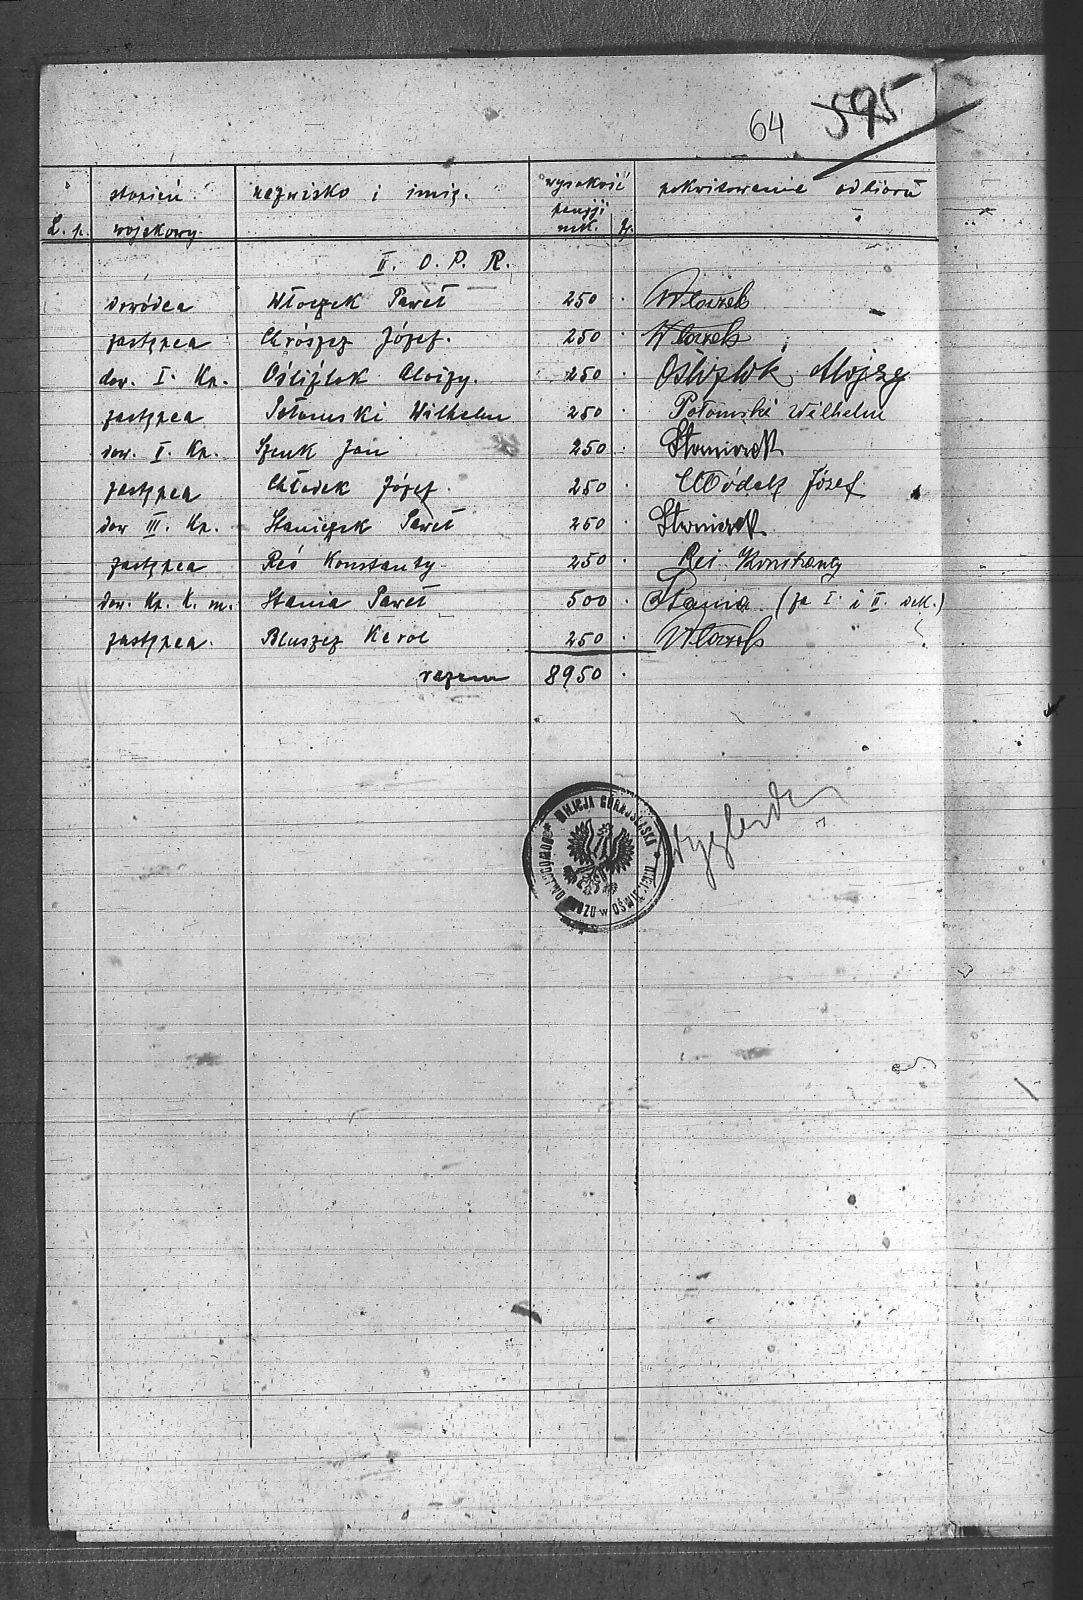 64 595
L. p. stopień wojskowy nazwisko i imię. wysokość pensji mk. f. pokwitowanie odbioru
II. O. P. R.
dowódca Włoczek Paweł 250 . Włoczek
zastępca Chrószcz Józef. 250 . Włoczek
dow. I. Kp. Oślizlok Aloizy. 250 . Oślizlok Alojzy
zastępca Połomski Wilhelm 250 . Połomski Wilhelm
dow. II. Kp. Szenk Jan 250 . Staniczek
zastępca Chłodek Józef. 250 . Józef
dow III. Kp. Staniczek Paweł 250 . Staniczek
zastępca Reś Konstanty. 250 . Konstanty
dow. Kp. K. m. Stania Paweł 500 . Stania (za I. i II. dek.)
zastępca. Bluszcz Karol 250 . Włoczek
razem 8950 .
MILICJA GÓRNOŚLĄSKA
DOWÓDZTWO OBOZU w OŚWIĘCIMIU